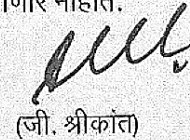 णार नाहीत.
(जी. श्रीकांत)